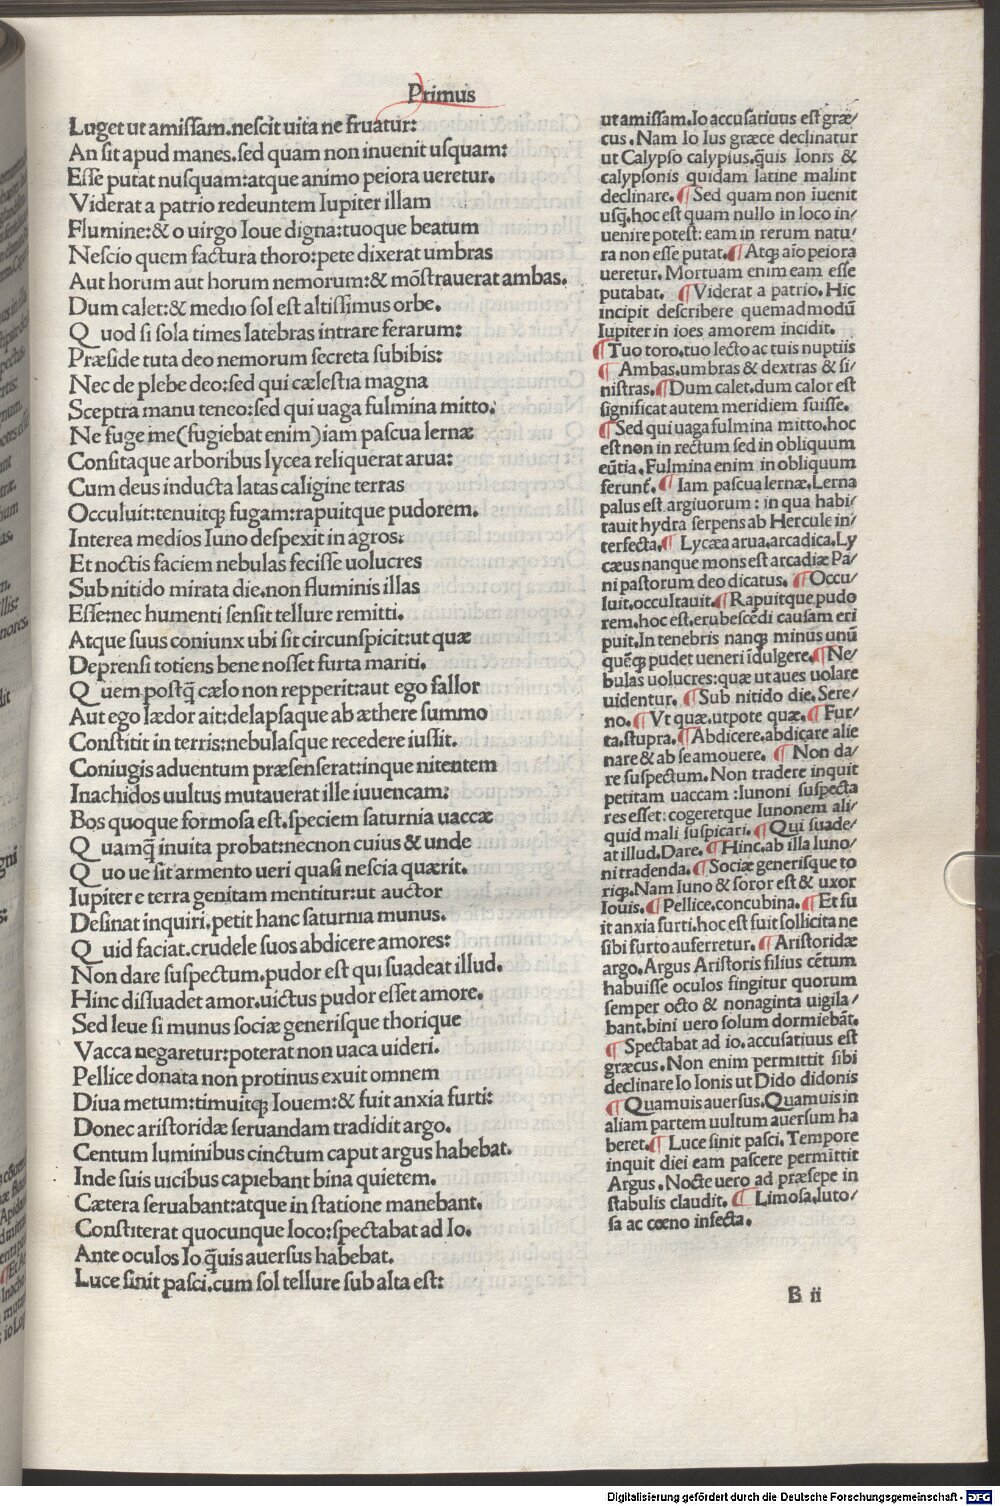 Primus
Luget ut amiſſam.neſcit uita ne fruatur:
An ſit apud manes.ſed quam non inuenit uſquam:
Eſſe putat nuſquam:atque animo peiora ueretur.
Viderat a patrio redeuntem Iupiter illam
Flumine:& o uirgo Ioue digna:tuoque beatum
Neſcio quem factura thoro:pete dixerat umbras
Aut horum aut horum nemorum:& mõſtrauerat ambas.
Dum calet:& medio ſol eſt altiſſimus orbe.
Quod ſi ſola times latebras intrare ferarum:
Præſide tuta deo nemorum ſecreta ſubibis:
Nec de plebe deo:ſed qui cæleſtia magna
Sceptra manu teneo:ſed qui uaga fulmina mitto.
Ne fuge me(fugiebat enim)iam paſcua lernæ
Conſitaque arboribus lycea reliquerat arua:
Cum deus inducta latas caligine terras
Occuluit:tenuitqꝫ fugam:rapuitque pudorem.
Interea medios Iuno deſpexit in agros:
Et noctis faciem nebulas feciſſe uolucres
Sub nitido mirata die.non fluminis illas
Eſſe:nec humenti ſenſit tellure remitti.
Atque ſuus coniunx ubi ſit circunſpicit:ut quæ
Deprenſi totiens bene noſſet furta mariti.
Quem poſtꝗ̃ cælo non repperit:aut ego fallor
Aut ego lædor ait:delapſaque ab æthere ſummo
Conſtitit in terris:nebulaſque recedere iuſſit.
Coniugis aduentum præſenſerat:inque nitentem
Inachidos uultus mutauerat ille iuuencam:
Bos quoque formoſa eſt.ſpeciem ſaturnia uaccæ
Quamꝗ̃ inuita probat:necnon cuius & unde
Quo ue ſit armento ueri quaſi neſcia quærit.
Iupiter e terra genitam mentitur:ut auctor
Deſinat inquiri.petit hanc ſaturnia munus.
Quid faciat.crudele ſuos abdicere amores:
Non dare ſuſpectum.pudor eſt qui ſuadeat illud.
Hinc diſſuadet amor.uictus pudor eſſet amore.
Sed leue ſi munus ſociæ generiſque thorique
Vacca negaretur:poterat non uaca uideri.
Pellice donata non protinus exuit omnem
Diua metum:timuitqꝫ Iouem:& fuit anxia furti:
Donec ariſtoridæ ſeruandam tradidit argo.
Centum luminibus cinctum caput argus habebat.
Inde ſuis uicibus capiebant bina quietem.
Cætera ſeruabant:atque in ſtatione manebant.
Conſtiterat quocunque loco:ſpectabat ad Io.
Ante oculos Io ꝗ̃uis auerſus habebat.
Luce ſinit paſci.cum ſol tellure ſub alta eſt:
ut amiſſam.Io accuſatiuus eſt græ/
cus.Nam Io Ius græce declinatur
ut Calypſo calypſus.ꝗ̃uis Ionis &
calypſonis quidam latine malint
declinare.¶Sed quam non iuenit
uſꝗ̃.hoc eſt quam nullo in loco in/
uenire poteſt: eam in rerum natu/
ra non eſſe putat.¶Atqꝫ aĩo peiora
ueretur.Mortuam enim eam eſſe
putabat. ¶Viderat a patrio.Hic
incipit deſcribere quemadmodũ
Iupiter in ioes amorem incidit.
¶Tuo toro.tuo lecto ac tuis nuptiis
¶Ambas.umbras & dextras & ſi/
niſtras.¶Dum calet.dum calor eſt
ſignificat autem meridiem fuiſſe.
¶Sed qui uaga fulmina mitto.hoc
eſt non in rectum ſed in obliquum
eũtia.Fulmina enim in obliquum
ferunt̃.¶ Iam paſcua lernæ.Lerna
palus eſt argiuorum: in qua habi/
tauit hydra ſerpens ab Hercule in/
terfecta.¶ Lycæa arua.arcadica.Ly
cæus nanque mons eſt arcadiæ Pa/
ni paſtorum deo dicatus. ¶Occu/
luit.occultauit.¶Rapuitque pudo
rem.hoc eſt.erubeſcẽdi cauſam eri
puit.In tenebris nanqꝫ minus unũ
quẽqꝫ pudet ueneri ĩdulgere.¶Ne/
bulas uolucres:quæ ut aues uolare
uidentur. ¶Sub nitido die.Sere/
no.¶Vt quæ.utpote quæ.¶Fur/
ta.ſtupra.¶Abdicere.abdicare alie
nare & ab ſe amouere. ¶Non da/
re ſuſpectum.Non tradere inquit
petitam uaccam :Iunoni ſuſpecta
res eſſet: cogeretque Iunonem ali/
quid mali ſuſpicari.¶Qui ſuade/
at illud.Dare.¶Hinc.ab illa Iuno/
ni tradenda.¶Sociæ generiſque to
riqꝫ.Nam Iuno & ſoror eſt & uxor
Iouis.¶Pellice.concubina.¶Et fu
it anxia furti.hoc eſt fuit ſollicita ne
ſibi furto auferretur.¶Ariſtoridæ
argo.Argus Ariſtoris filius cẽtum
habuiſſe oculos fingitur quorum
ſemper octo & nonaginta uigila/
bant.bini uero ſolum dormiebãt.
¶Spectabat ad io.accuſatiuus eſt
græcus.Non enim permittit ſibi
declinare Io Ionis ut Dido didonis
¶Quamuis auerſus.Quamuis in
aliam partem uultum auerſum ha
beret.¶ Luce ſinit paſci.Tempore
inquit diei eam paſcere permittit
Argus.Nocte uero ad præſepe in
ſtabulis claudit.¶Limoſa.luto/
ſa ac cœno infecta.
B ii
Digitalisierung gefördert durch die Deutsche Forschungsgemeinschaft - DFG